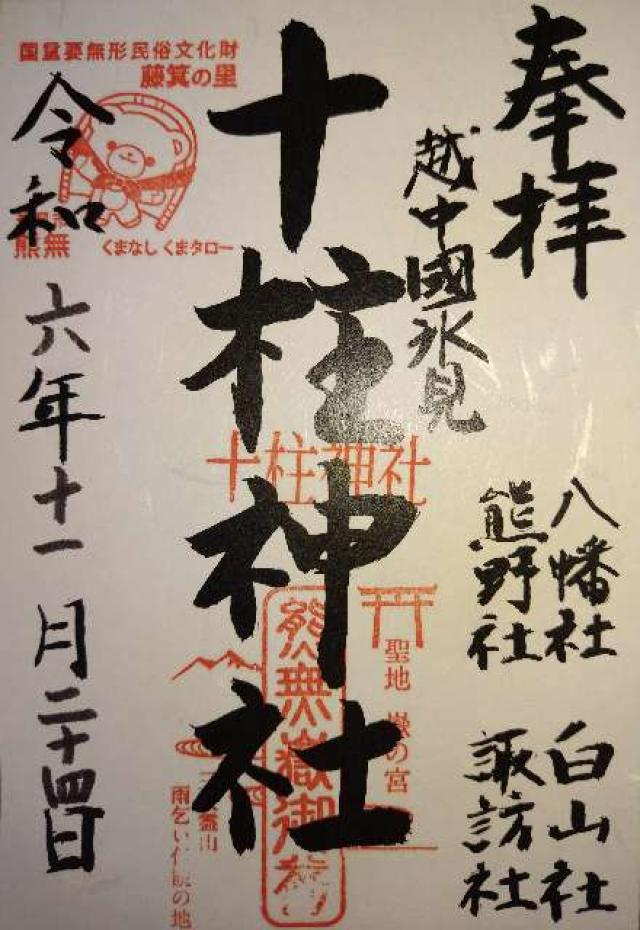 奉拝
越中國氷見
八幡社
熊野社
白山社
諏訪社
十柱神社
令和六年十一月二十四日
国重要無形民俗文化財
藤箕の里
熊無
くまなし くまタロー
十柱神社
聖地
の宮
霊山
雨乞い
の地
熊無嶽御